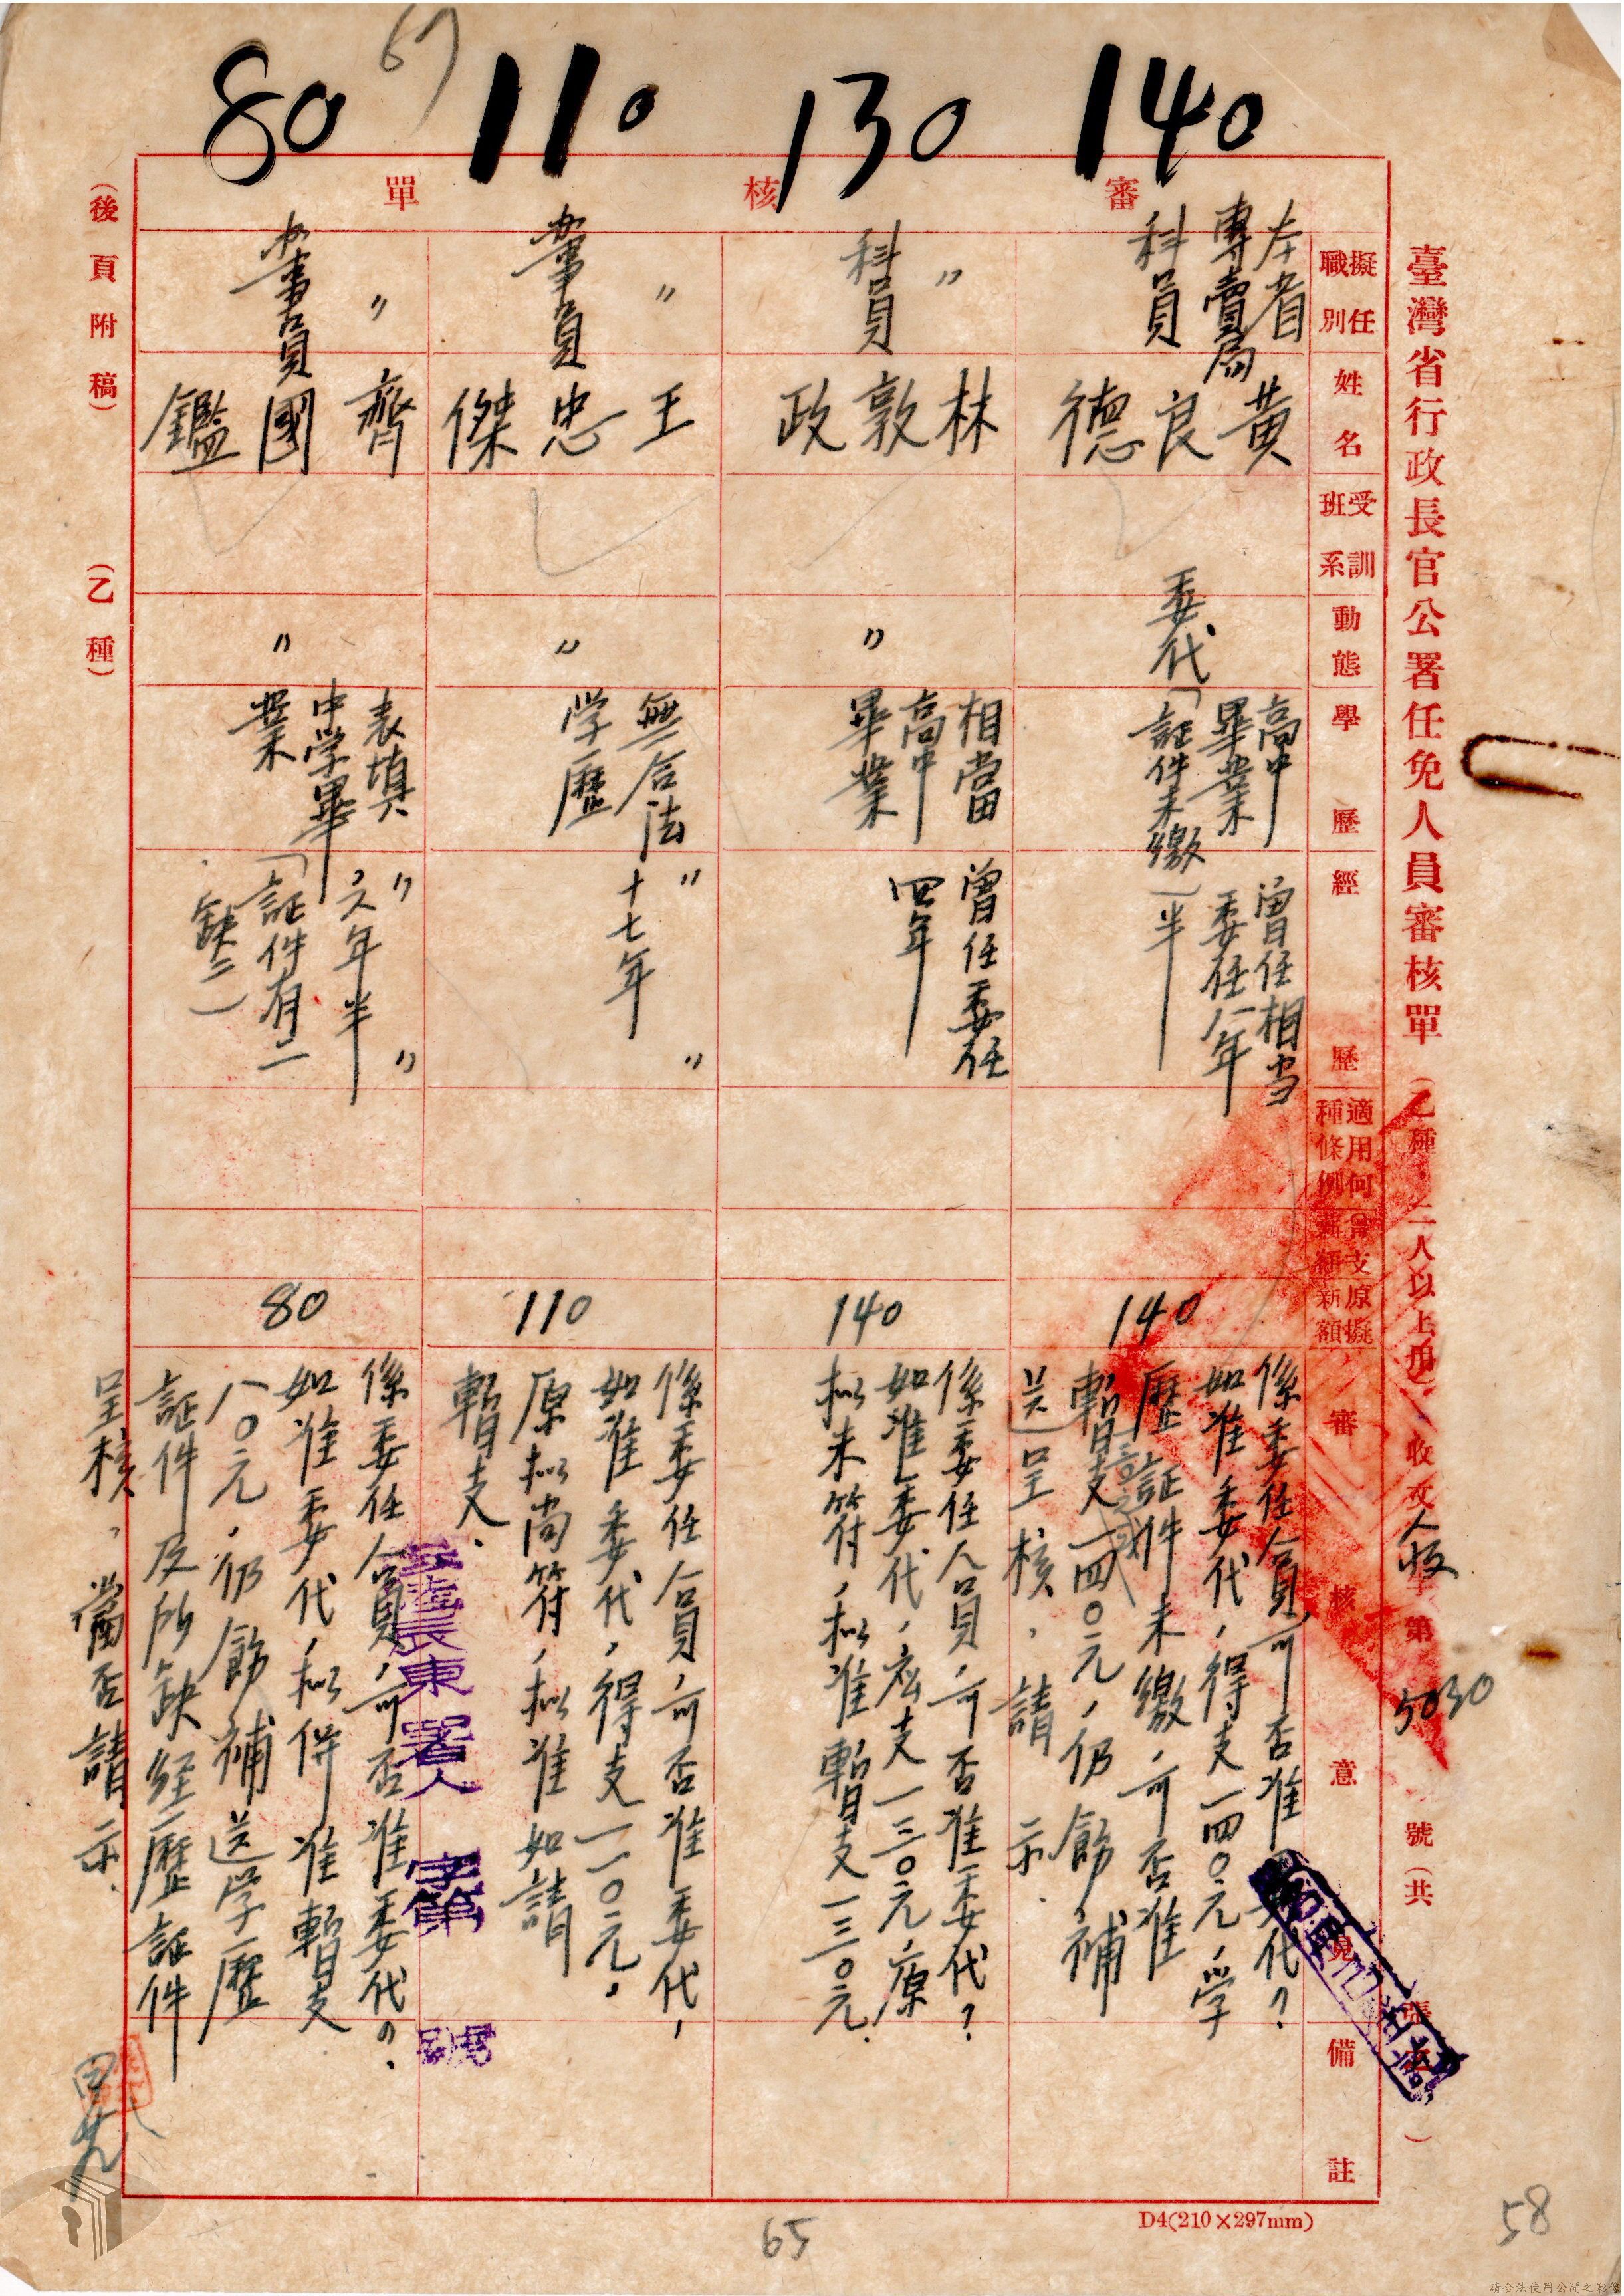 67
140
130
110
80
臺灣省行政長官公署任免人員審核單
(乙種 二人以上用)
收文人收字第5030號(共
審核單
擬任職別
姓名
受訓班系
動態
學歷
經歷
適用何種條例
曾支薪額
原擬薪額
審核意見
備註
本省
專賣局
科員
黃良德
委代
高中
畢業
(証件未繳)
曾任相当
委任八年
半
140
係委任人員,可否准委代?
如准委代,得支一四〇元,学
歷証件未繳,可否准
暫支一四〇元,仍飭補
送呈核,請示.
〃
科員
林敦政
〃
相當
高中
畢業
曾任委任
四年
140
係委任人員,可否准委代?
如准委代,宏支一三〇元,原
拟未符,拟准暫支一三〇元.
〃
辦事員
王忠傑
〃
無合法
学歷
〃十七年〃
110
係委任人員,可否准委代,
如准委代,得支一一〇元,
原拟尚符,拟准如請
暫支.
〃
辦事員
齊國鑑
〃
表填
中学畢
業
〃六年半〃
(証件有二
缺二)
80
係委任人員,可否准委代?.
如准委代,拟併准暫支
八〇元,仍飭補送学歷
証件及所缺经歷証件
呈核,當否請示.
署人 字第 號
(後頁附稿)
(乙種)
D4(210×297mm)
65
58
請合法使用公開之影像